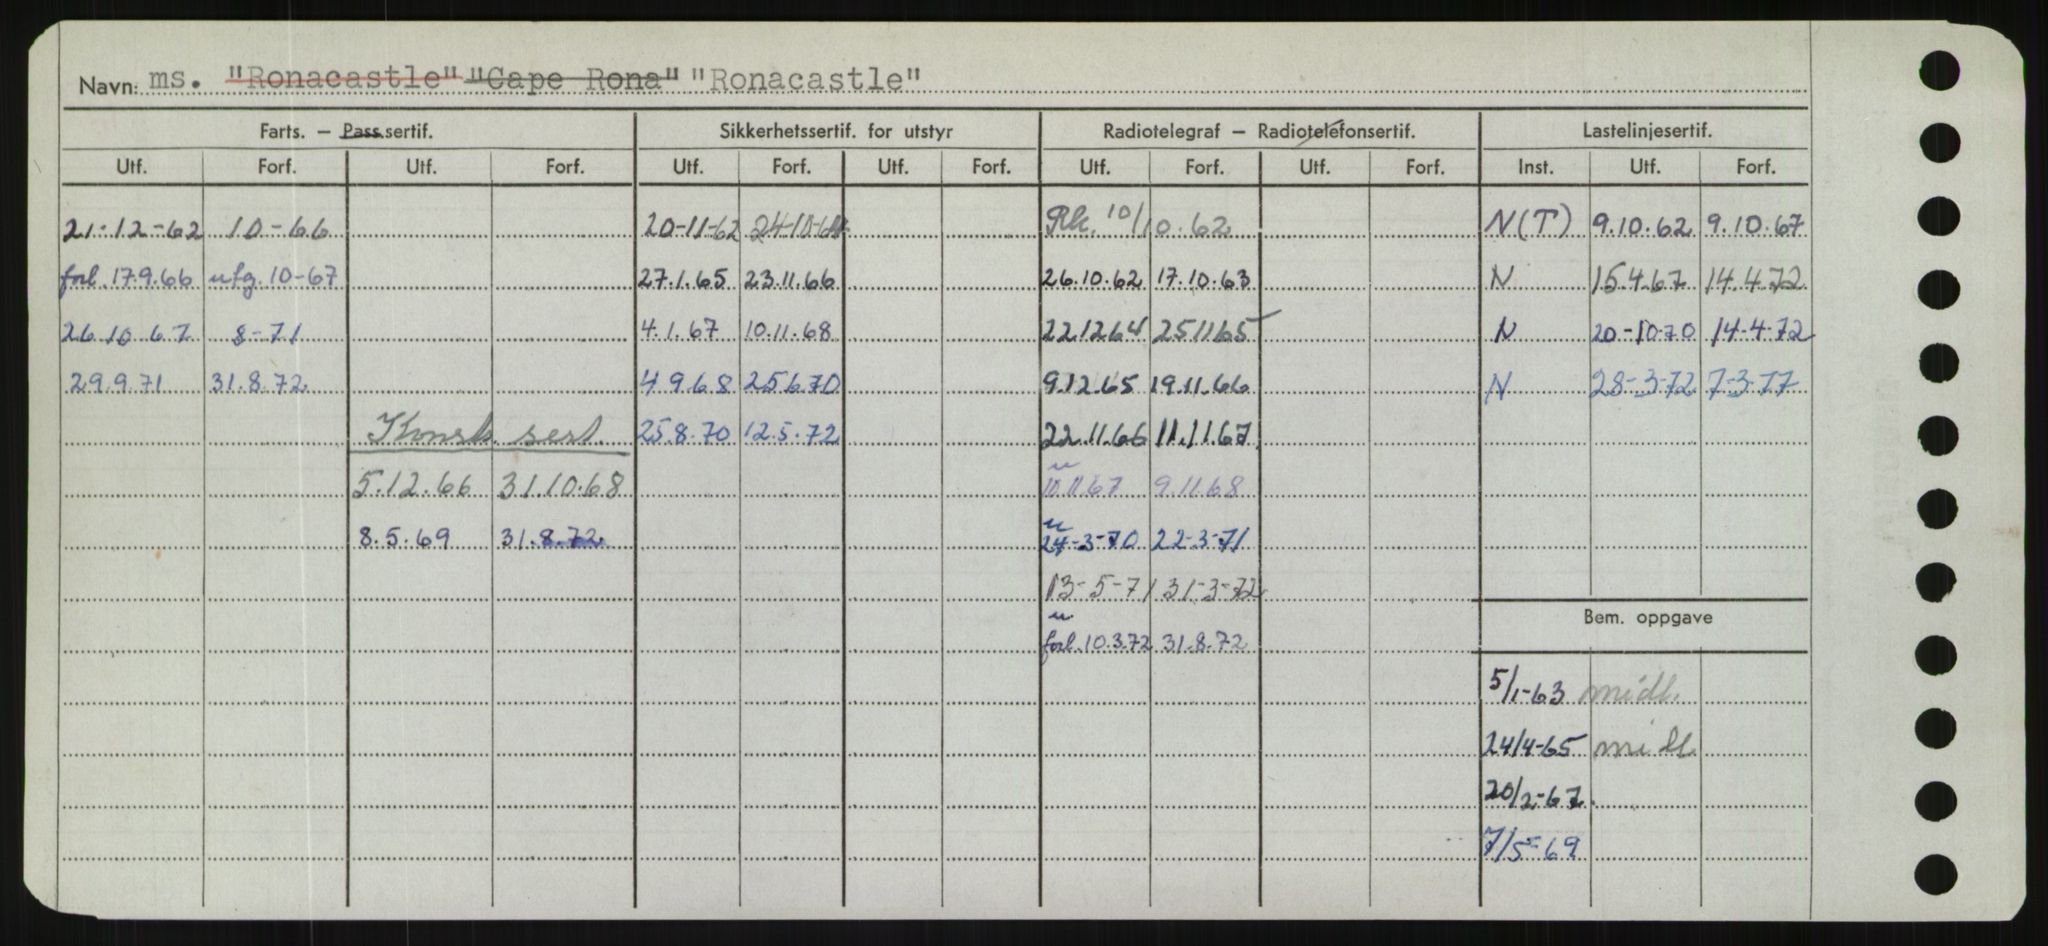 Navn: ms. "Ronacastle" "Cape Rona" "Ronacastle"
Farts. — Pass.sertif. Sikkerhetssertif. for utstyr Radiotelegraf — Radiotelefonsertif. Lastelinjesertif.
Utf. Forf. Utf. Forf. Utf. Forf. Utf. Forf. Utf. Forf. Utf. Forf. Inst. Utf. Forf.
21-12-62 10-66 20-11-62 24-10-64 Rk. 10/10.62 N(T) 9.10.62 9.10.67
forl. 17.9.66 utg. 10-67 27.1.65 23.11.66 26.10.62 17.10.63 N 15.4.67 14.4.72
26 10 67 8-71 4.1.67 10.11.68 22.12.64 25.11.65 N 20-10-70 14-4-72
29.9.71 31.8.72 4.9.68 25.6.70 9.12.65 19.11.66 N 28-3-72 7-3-77
Konstr. sert. 25.8.70 12.5.72 22.11.66 11.11.67
5.12.66 31.10.68 u 10.11.67 9.11.68
8.5.69 31.8.72 u 24-3-70 22-3-71
13-5-71 31-3-72
Bem. oppgave
u forl. 10.3.72 31.8.72
5/1-63 midl.
24/4-65 midl.
20/2-67
7/5-69